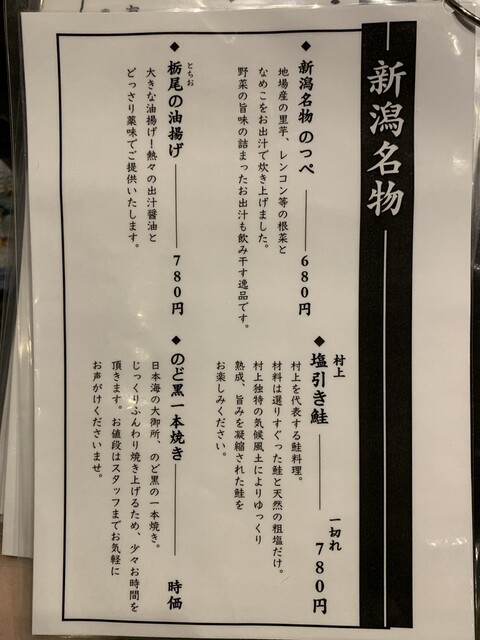 新潟名物
◆新潟名物 のっぺ 680円
地場産の里芋、レンコン等の根菜と
なめこをお出汁で炊き上げました。
野菜の旨味の詰まったお出汁も飲み干す逸品です。
◆栃尾の油揚げ 780円
とちお
大きな油揚げ！熱々の出汁醤油と
どっさり薬味でご提供いたします。
村上
◆塩引き鮭 一切れ 780円
村上を代表する鮭料理。
材料は選りすぐった鮭と天然の粗塩だけ。
村上独特の気候風土によりゆっくり
熟成、旨みを凝縮された鮭を
お楽しみください。
◆のど黒一本焼き 時価
日本海の大御所、のど黒の一本焼き。
じっくりふんわり焼き上げるため、少々お時間を
頂きます。お値段はスタッフまでお気軽に
お声がけくださいませ。